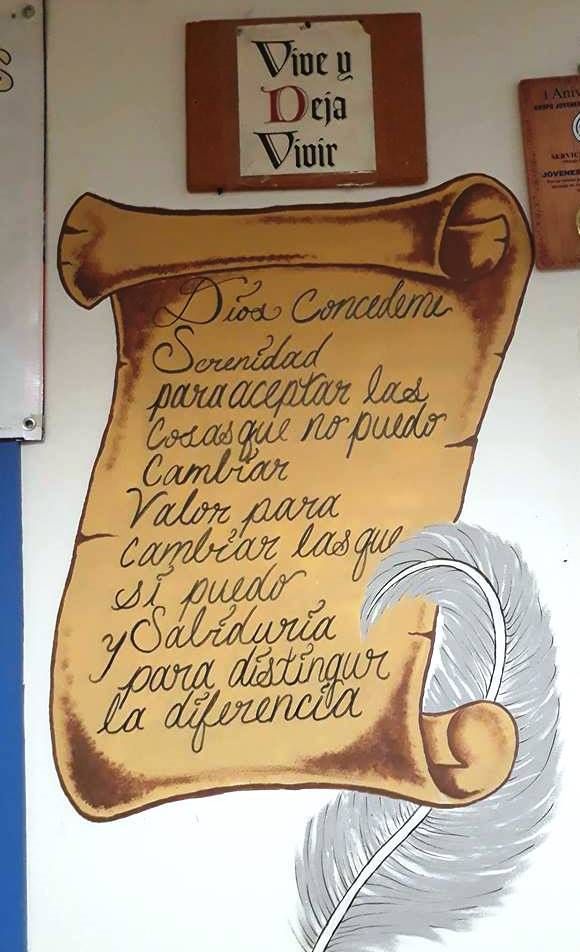 Vive y
Deja
Vivir
1 Aniv
GRUPO JOVENE
SERVIC
JOVENE
Dios Concedeme
Serenidad
para aceptar las
Cosas que no puedo
Cambiar
Valor para
cambiar las que
sí puedo
y Sabiduría
para distingur
la diferencia